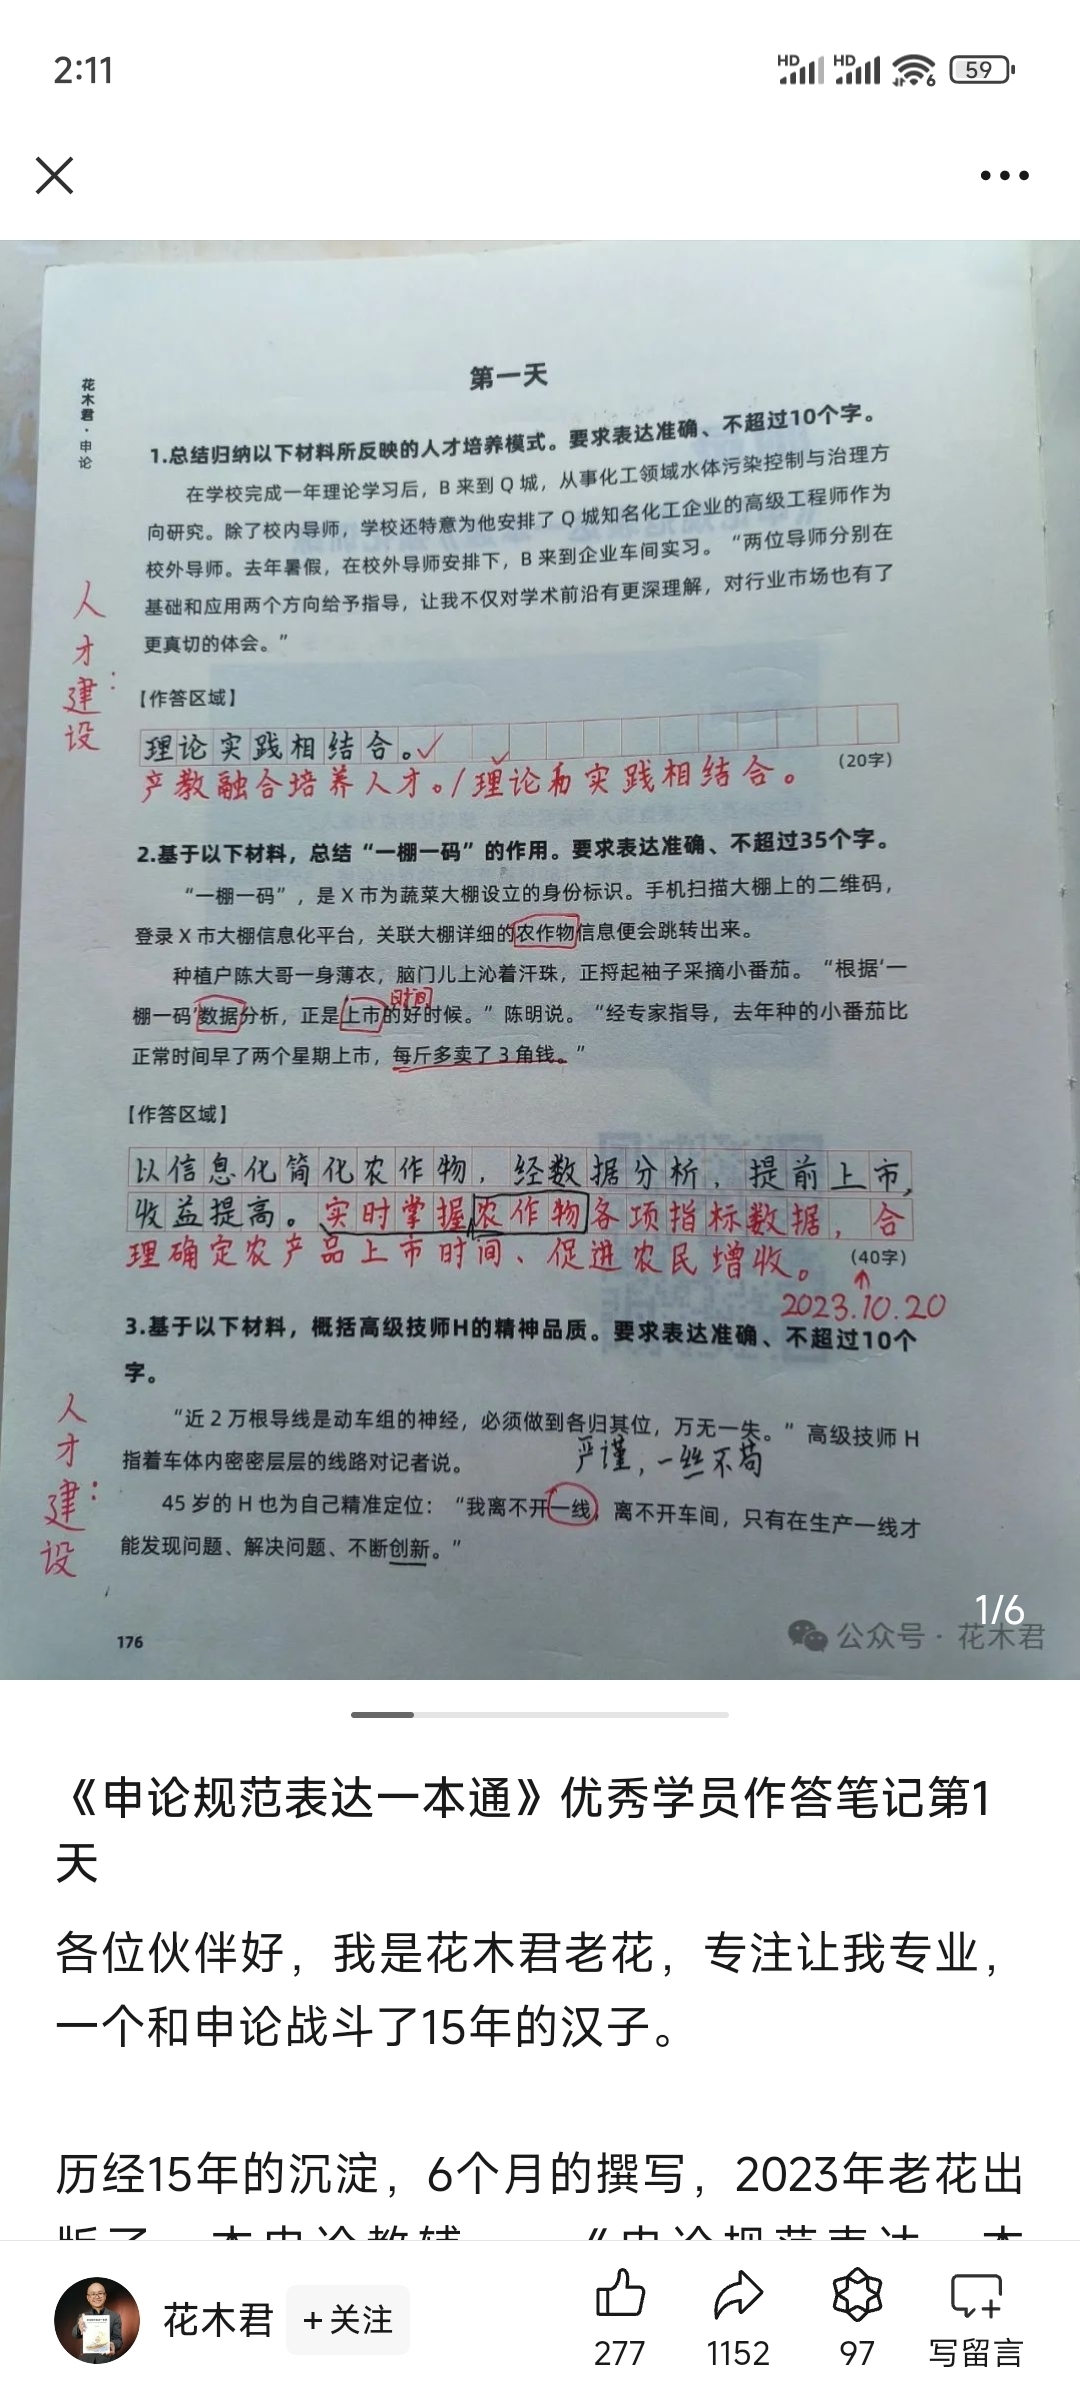 2:11
HD HD 6 59
第一天
花木君·申论
1.总结归纳以下材料所反映的人才培养模式。要求表达准确、不超过10个字。
在学校完成一年理论学习后，B 来到 Q 城，从事化工领域水体污染控制与治理方
向研究。除了校内导师，学校还特意为他安排了 Q 城知名化工企业的高级工程师作为
校外导师。去年暑假，在校外导师安排下，B 来到企业车间实习。“两位导师分别在
基础和应用两个方向给予指导，让我不仅对学术前沿有更深理解，对行业市场也有了
更真切的体会。”
人才建设：
【作答区域】
理论实践相结合。✓
(20字)
产教融合培养人才。/理论和实践相结合。
2.基于以下材料，总结“一棚一码”的作用。要求表达准确、不超过35个字。
“一棚一码”，是 X 市为蔬菜大棚设立的身份标识。手机扫描大棚上的二维码，
登录 X 市大棚信息化平台，关联大棚详细的农作物信息便会跳转出来。
种植户陈大哥一身薄衣，脑门儿上沁着汗珠，正捋起袖子采摘小番茄。“根据‘一
时间
棚一码’数据分析，正是上市的好时候。”陈明说。“经专家指导，去年种的小番茄比
正常时间早了两个星期上市，每斤多卖了 3 角钱。”
【作答区域】
以信息化简化农作物，经数据分析，提前上市，
收益提高。实时掌握农作物各项指标数据，合
理确定农产品上市时间、促进农民增收。
(40字)
2023.10.20
3.基于以下材料，概括高级技师H的精神品质。要求表达准确、不超过10个
字。
“近 2 万根导线是动车组的神经，必须做到各归其位，万无一失。”高级技师 H
指着车体内密密层层的线路对记者说。
严谨，一丝不苟
45 岁的 H 也为自己精准定位：“我离不开一线，离不开车间，只有在生产一线才
能发现问题、解决问题、不断创新。”
人才建设：
176
1/6
公众号 · 花木君
《申论规范表达一本通》优秀学员作答笔记第1
天
各位伙伴好，我是花木君老花，专注让我专业，
一个和申论战斗了15年的汉子。
历经15年的沉淀，6个月的撰写，2023年老花出
版了一本申论教辅——《申论规范表达一本
花木君
+关注
277
1152
97
写留言